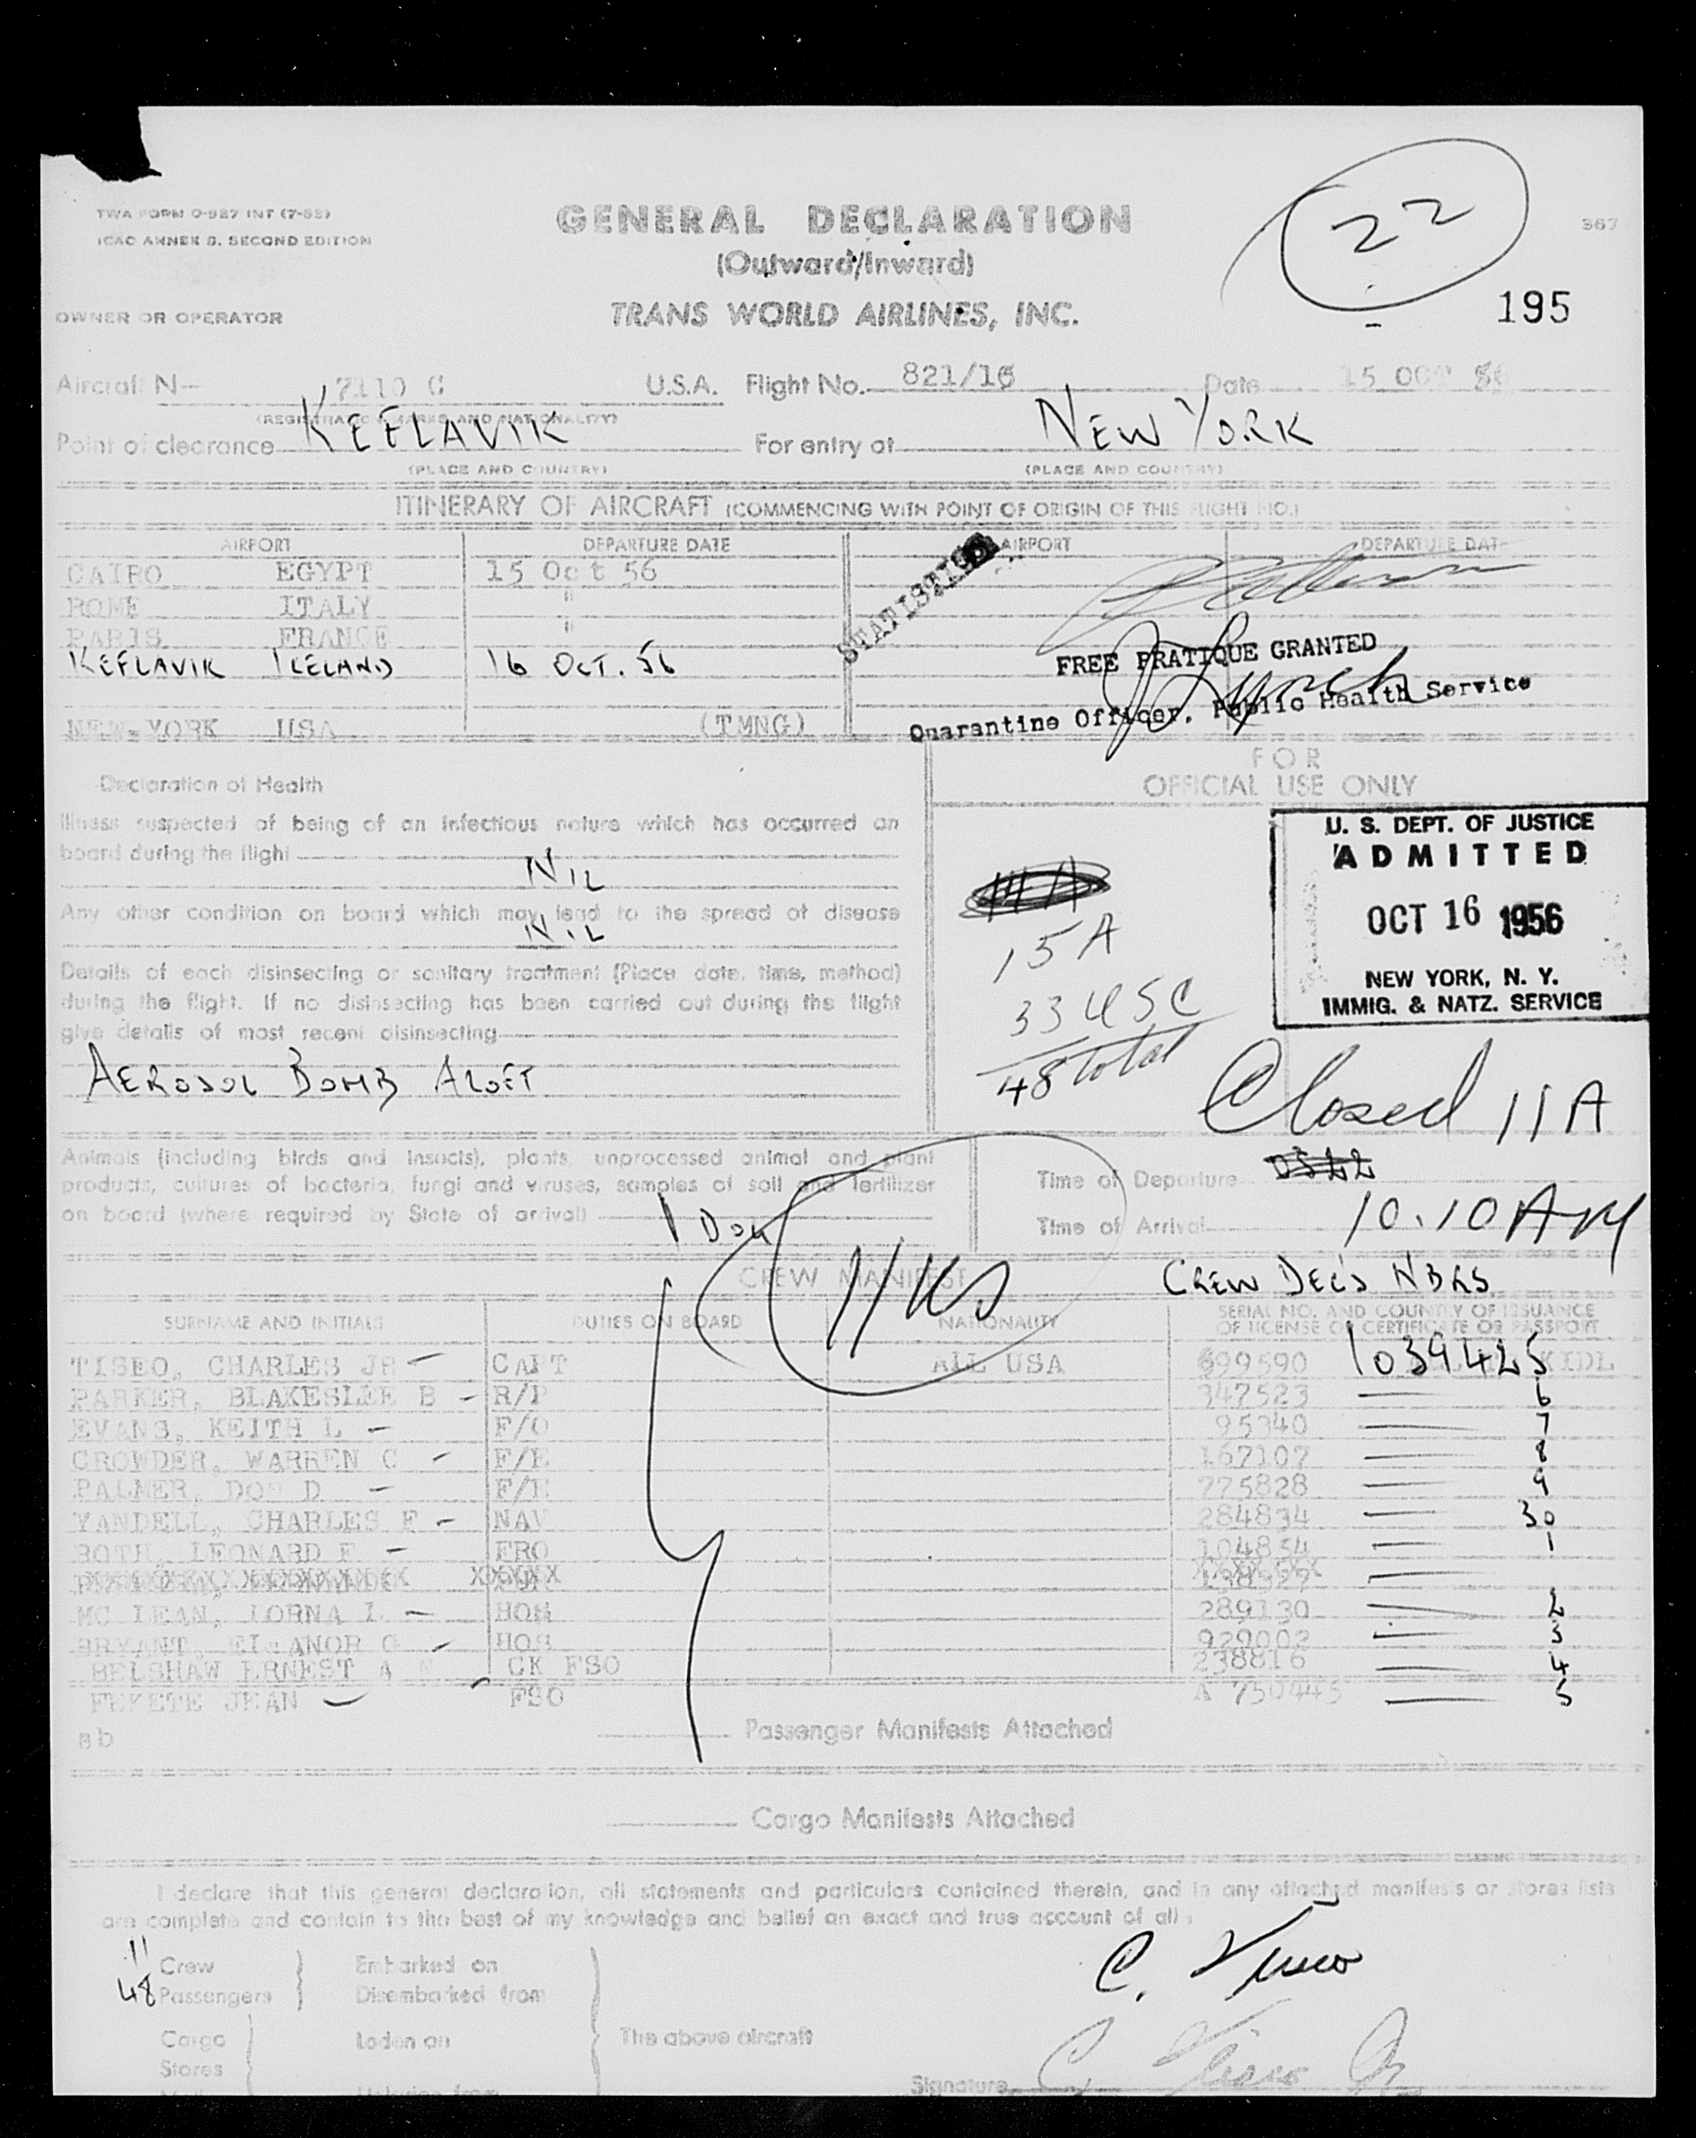 TWA FORM O-927 INT (7-55)
ICAO ANNEX 9. SECOND EDITION
GENERAL DECLARATION
(Outward/Inward)
TRANS WORLD AIRLINES, INC.
22
367
195
OWNER OR OPERATOR
Aircraft N- 7110 C U.S.A. Flight No. 821/16 Date 15 OCT 56
(REGISTRATION MARKS AND NATIONALITY)
Point of clearance KEFLAVIK For entry at NEW YORK
(PLACE AND COUNTRY) (PLACE AND COUNTRY)
ITINERARY OF AIRCRAFT (COMMENCING WITH POINT OF ORIGIN OF THIS FLIGHT NO.)
AIRPORT DEPARTURE DATE AIRPORT DEPARTURE DATE
CAIRO EGYPT 15 Oct 56
ROME ITALY "
PARIS FRANCE "
KEFLAVIK ICELAND 16 OCT. 56
NEW YORK USA (TMNG)
STATISTICS
FREE PRATIQUE GRANTED
Quarantine Officer, Public Health Service
FOR
OFFICIAL USE ONLY
Declaration of Health
Illness suspected of being of an infectious nature which has occurred on
board during the flight
NIL
Any other condition on board which may lead to the spread of disease
NIL
Details of each disinsecting or sanitary treatment (Place date, time, method)
during the flight. If no disinsecting has been carried out during the flight
give details of most recent disinsecting
AEROSOL BOMB ALOFT
15 A
33 USC
48 total
U. S. DEPT. OF JUSTICE
ADMITTED
OCT 16 1956
NEW YORK, N. Y.
IMMIG. & NATZ. SERVICE
Closed 11 A
Animals (including birds and insects), plants, unprocessed animal and plant
products, cultures of bacteria, fungi and viruses, samples of soil and fertilizer
on board (where required by State of arrival) 1 DOG
Time of Departure 0522
Time of Arrival 10.10 AM
CREW MANIFEST
CREW DEC'S NBRS
SURNAME AND INITIALS DUTIES ON BOARD NATIONALITY SERIAL NO. AND COUNTRY OF ISSUANCE
OF LICENSE OR CERTIFICATE OR PASSPORT
TISEO, CHARLES JR CAPT ALL USA 699590 1039425 KIDL
PARKER, BLAKESLEE B R/P 347523 6
EVANS, KEITH L F/O 95340 7
CROWDER, WARREN C F/E 167107 8
PALMER, DON D F/E 775828 9
YANDELL, CHARLES F NAV 284834 30
ROTH, LEONARD F FRO 104854 1
MC LEAN, LORNA L HOS 289130 2
BRYANT, ELEANOR G HOS 929002 3
BELSHAW ERNEST A CK FSO 238816 4
FEKETE JEAN FSO A 750445 5
ab
Passenger Manifests Attached
Cargo Manifests Attached
I declare that this general declaration, all statements and particulars contained therein, and in any attached manifests or stores lists
are complete and contain to the best of my knowledge and belief an exact and true account of all:
11 Crew Embarked on
48 Passengers Disembarked from
C. Tiseo
Cargo Laden on The above aircraft
Stores
Signature C Tiseo Jr